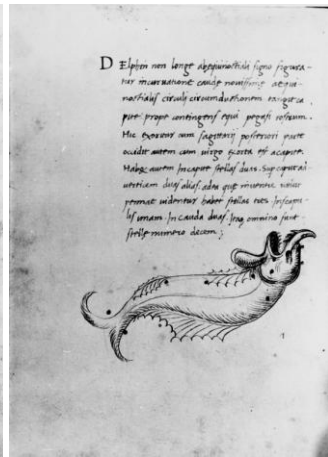 D Elphin non longe abequinotiali signo figura-
tur incuruatione caude nouissimę aequi-
noctialis circuli circumductionem
prope contingens equi pegasi rostrum.
Hic cum sagittarij posteriori parte
occidit autem cum uirgo est acapite.
autem Incapite stellas duas. Sup caput ad
duas alias. adea quę uelut
pennae uidentur haber stellas tres. Inscapu-
lis unam. In cauda duas. Itaq omnino sunt
stellę numero decem;